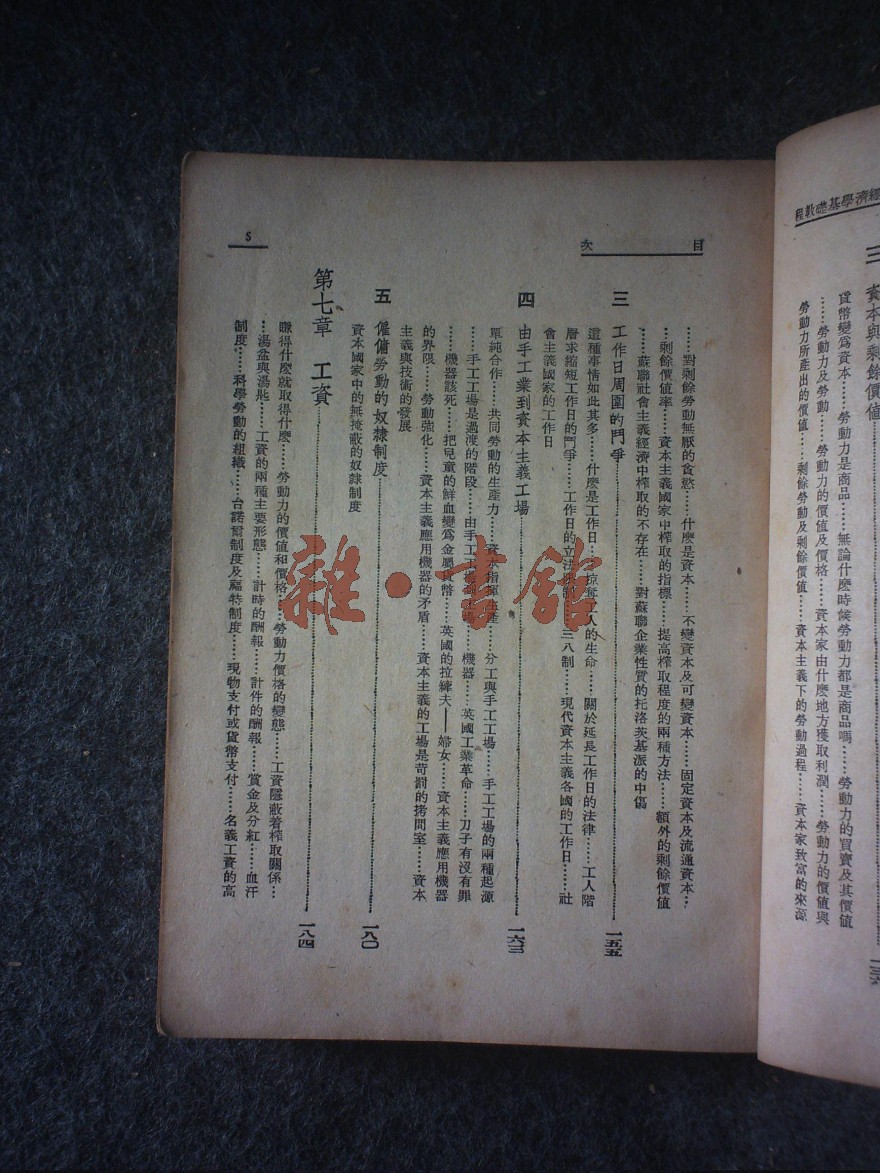 經濟學基礎教程
三 資本與剩餘價值
貨幣變爲資本……勞動力是商品……無論什麽時候勞動力都是商品嗎……勞動力的買賣及其價值
……勞動力及勞動……勞動力的價值及價格……資本家由什麽地方獲取利潤……勞動力的價值與
勞動力所產出的價值……剩餘勞動及剩餘價值……資本主義下的勞動過程……資本家致富的來源
目次
5
……對剩餘勞動無厭的貪慾……什麽是資本……不變資本及可變資本……固定資本及流通資本…
…剩餘價值率……資本主義國家中榨取的指標……提高榨取程度的兩種方法……額外的剩餘價值
……蘇聯社會主義經濟中榨取的不存在……對蘇聯企業性質的托洛茨基派的中傷
三 工作日周圍的鬥爭……一五五
這種事情如此其多……什麽是工作日…掠奪工人的生命……關於延長工作日的法律……工人階
層求縮短工作日的鬥爭……工作日的立法限制……三八制……現代資本主義各國的工作日……社
會主義國家的工作日
四 由手工業到資本主義工場……一六三
單純合作……共同勞動的生產力……資本指揮生產……分工與手工工場……手工工場的兩種起源
……手工工場是過渡的階段……由手工工場到工場……機器……英國工業革命……刀子有沒有罪
……機器該死……把兒童的鮮血變爲金屬貨幣……英國的拉縴夫——婦女……資本主義應用機器
的界限……勞動強化……資本主義應用機器的矛盾……資本主義的工場是苛罰的拷問室……資本
主義與技術的發展
五 僱傭勞動的奴隸制度……一八〇
資本國家中的無掩蔽的奴隸制度
第七章 工資……一八四
賺得什麽就取得什麽……勞動力的價值和價格……勞動力價格的變態……工資隱蔽着榨取關係…
…湯盆與湯匙……工資的兩種主要形態……計時的酬報……計件的酬報……賞金及分紅……血汗
制度……科學勞動的組織……台諾爾制度及福特制度……現物支付或貨幣支付……名義工資的高
雜·書館